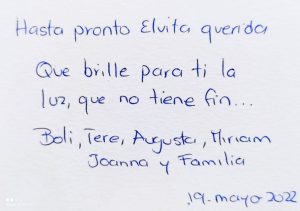 Hasta pronto Elvita querida
Que brille para ti la
luz, que no tiene fin...
Boli, Tere, Augusta, Miriam
Joanna y Familia
19-mayo 2022